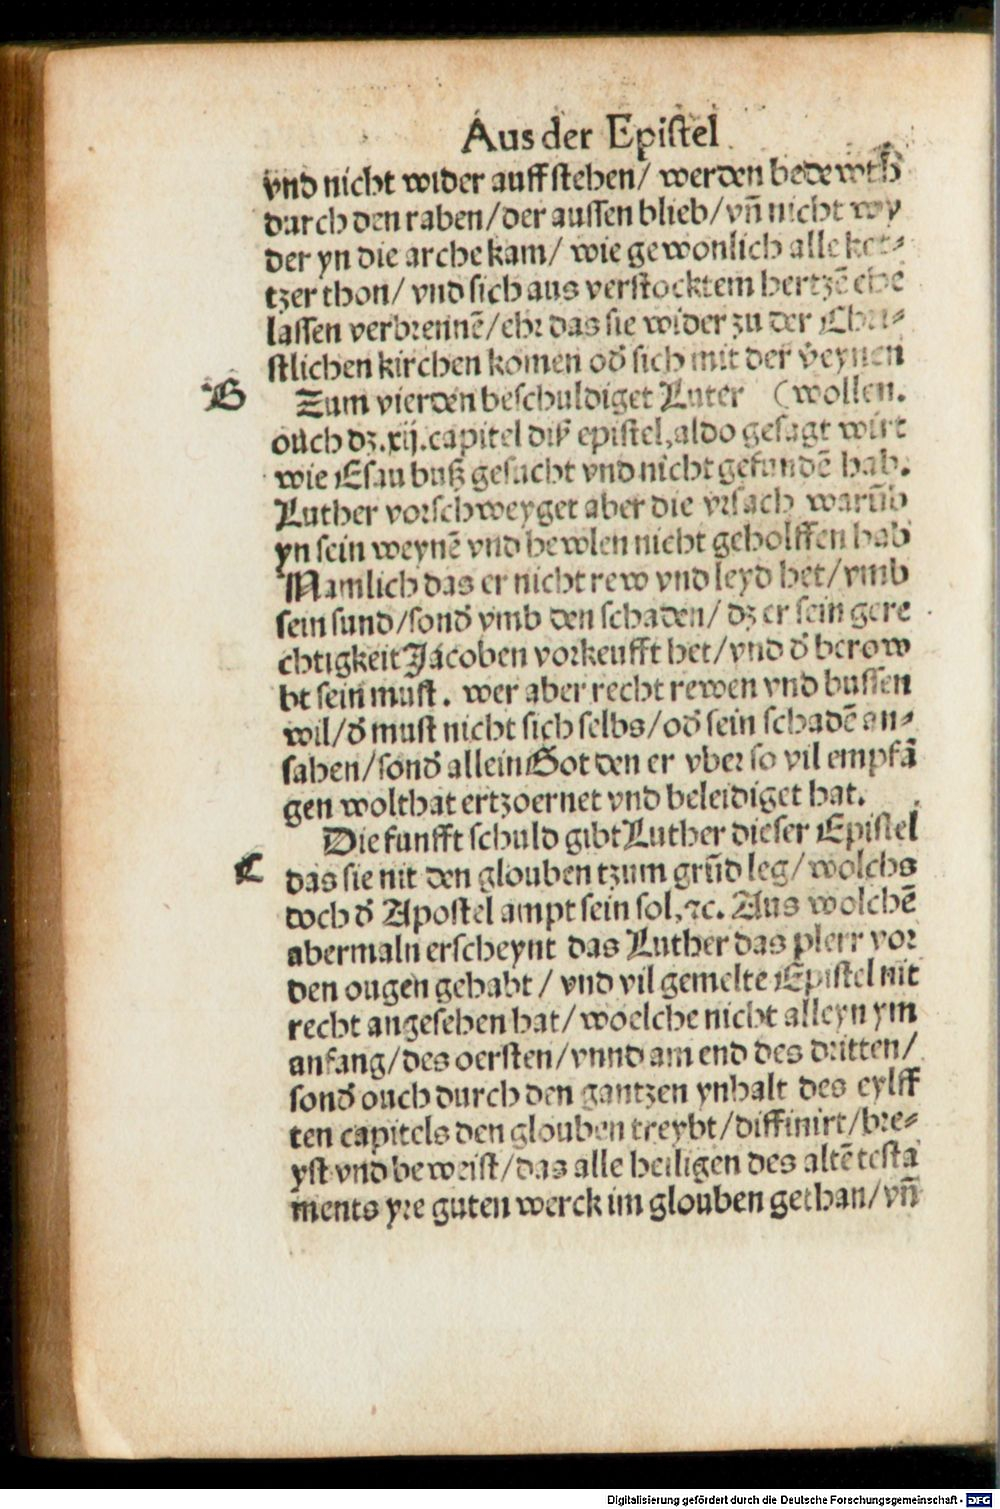 Aus der Epistel
vnd nicht wider auff stehen/ werden bedewth
durch den raben/der aussen blieb/vn̄ nicht wy
der yn die arche kam/ wie gewonlich alle ket⸗
tzer thon/ vnd sich aus verstocktem hertzē ehe
lassen verbrennē/ehr das sie wider zu der Chri⸗
stlichen kirchen komen od̕ sich mit der v̈eynen
B Zum vierden beschuldiget Luter (wollen.
ouch dz.xij.capitel diß epistel,aldo gesagt wirt
wie Esau buß gesucht vnd nicht gefundē hab.
Luther vorschweyget aber die vrsach warūb
yn sein weynē vnd hewlen nicht geholffen hab
Namlich das er nicht rew vnd leyd het/vmb
sein sund/sond̕ vmb den schaden/ dz er sein gere
chtigkeit Jacoben vorkeufft het/vnd d̕ berow
bt sein must. wer aber recht rewen vnd bussen
wil/d̕ must nicht sich selbs/od̕ sein schadē an⸗
sahen/sond̕ allein Got den er vber so vil empfā
gen wolthat ertzoernet vnd beleidiget hat.
Die funfft schuld gibt Luther dieser Epistel
C das sie nit den glouben tzum grūd leg/wolchs
doch d̕ Apostel ampt sein sol,⁊c. Aus wolchē
abermaln erscheynt das Luther das plerr vor
den ougen gehabt / vnd vil gemelte Epistel nit
recht angesehen hat/woelche nicht alleyn ym
anfang/des oersten/vnnd am end des dritten/
sond̕ ouch durch den gantzen ynhalt des eylff
ten capitels den glouben treybt/diffinirt/bre⸗
yst vnd beweist/das alle heiligen des altē testa
ments yre guten werck im glouben gethan/vn̄
Digitalisierung gefördert durch die Deutsche Forschungsgemeinschaft - DFG